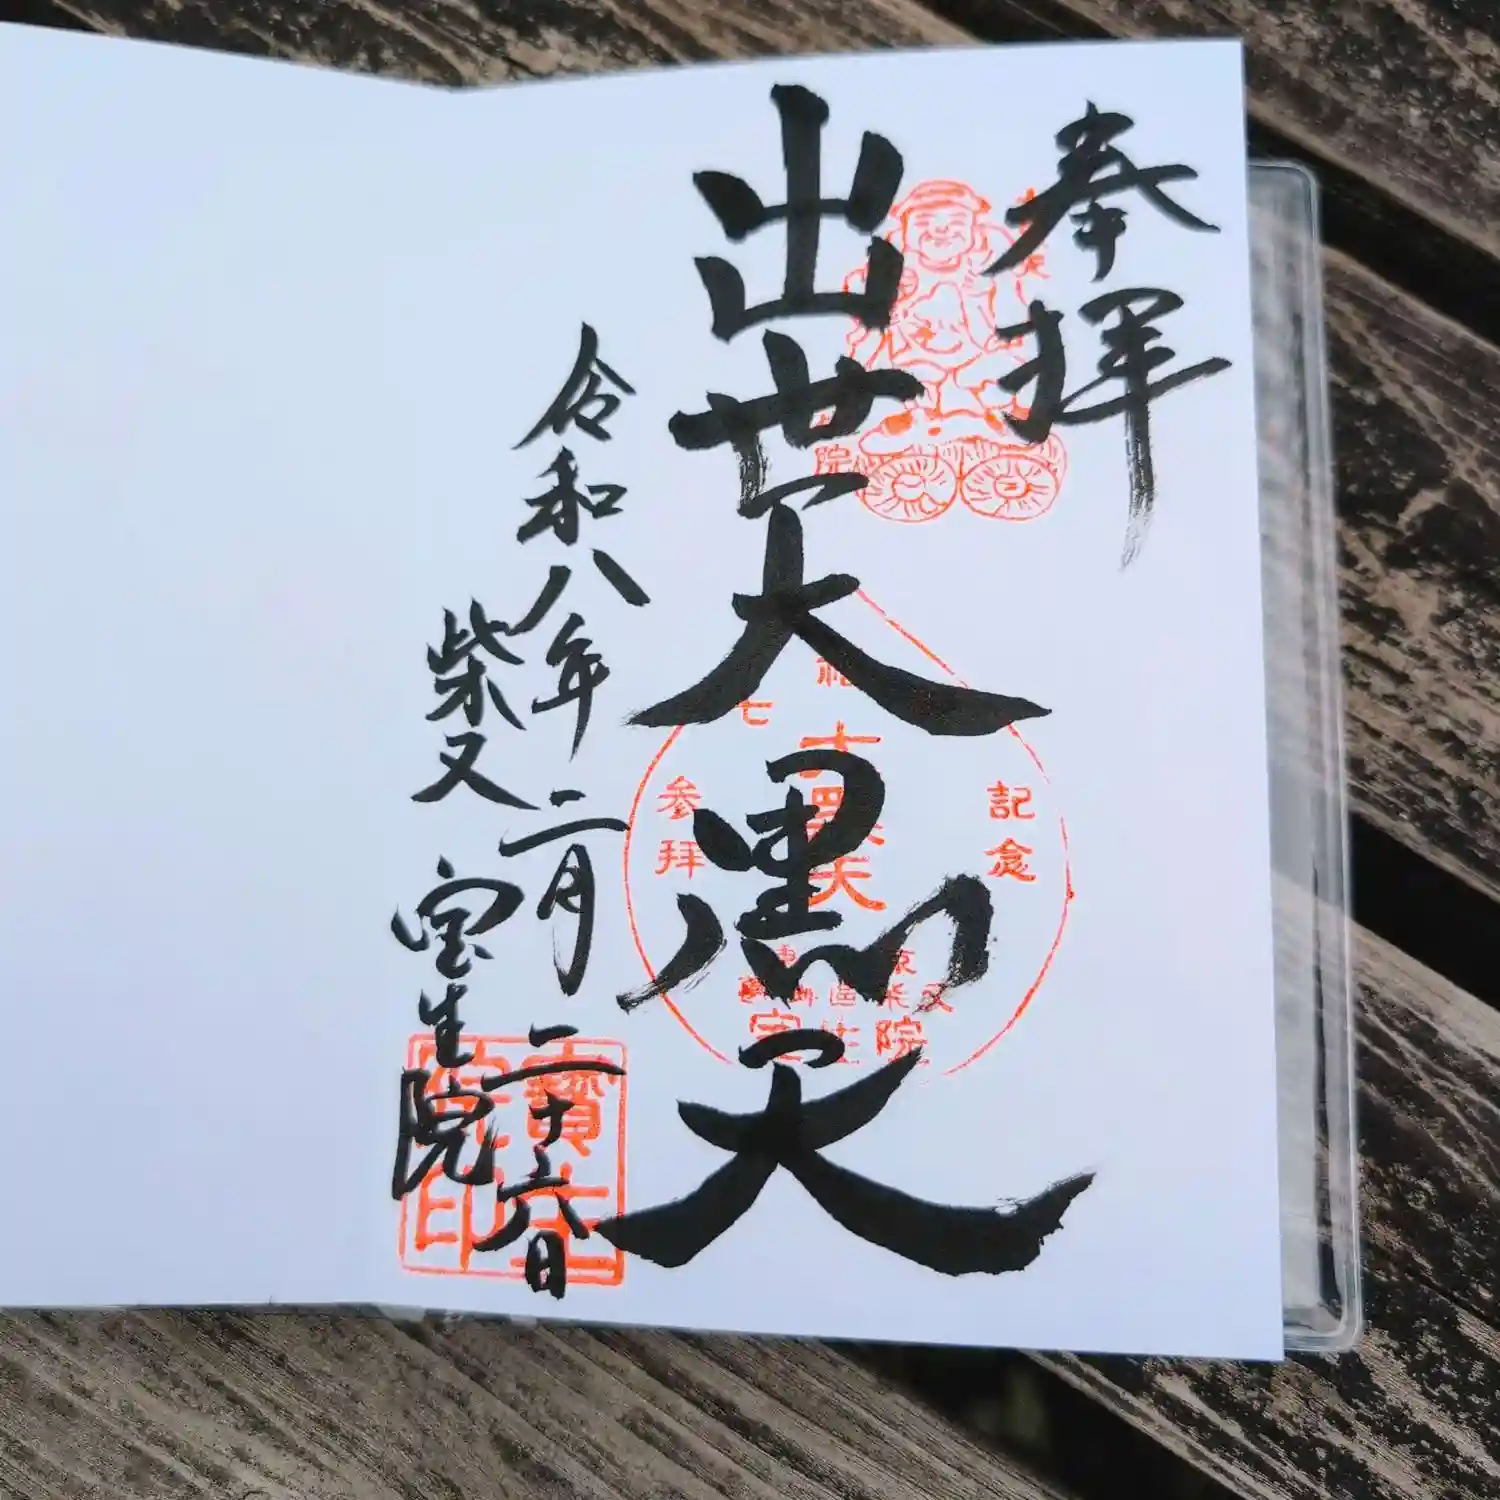 奉拝
出世大黒天
令和八年二月二十六日
柴又 宝生院
記念
参拝
大黒天
七
院
宝生院
寳生院印